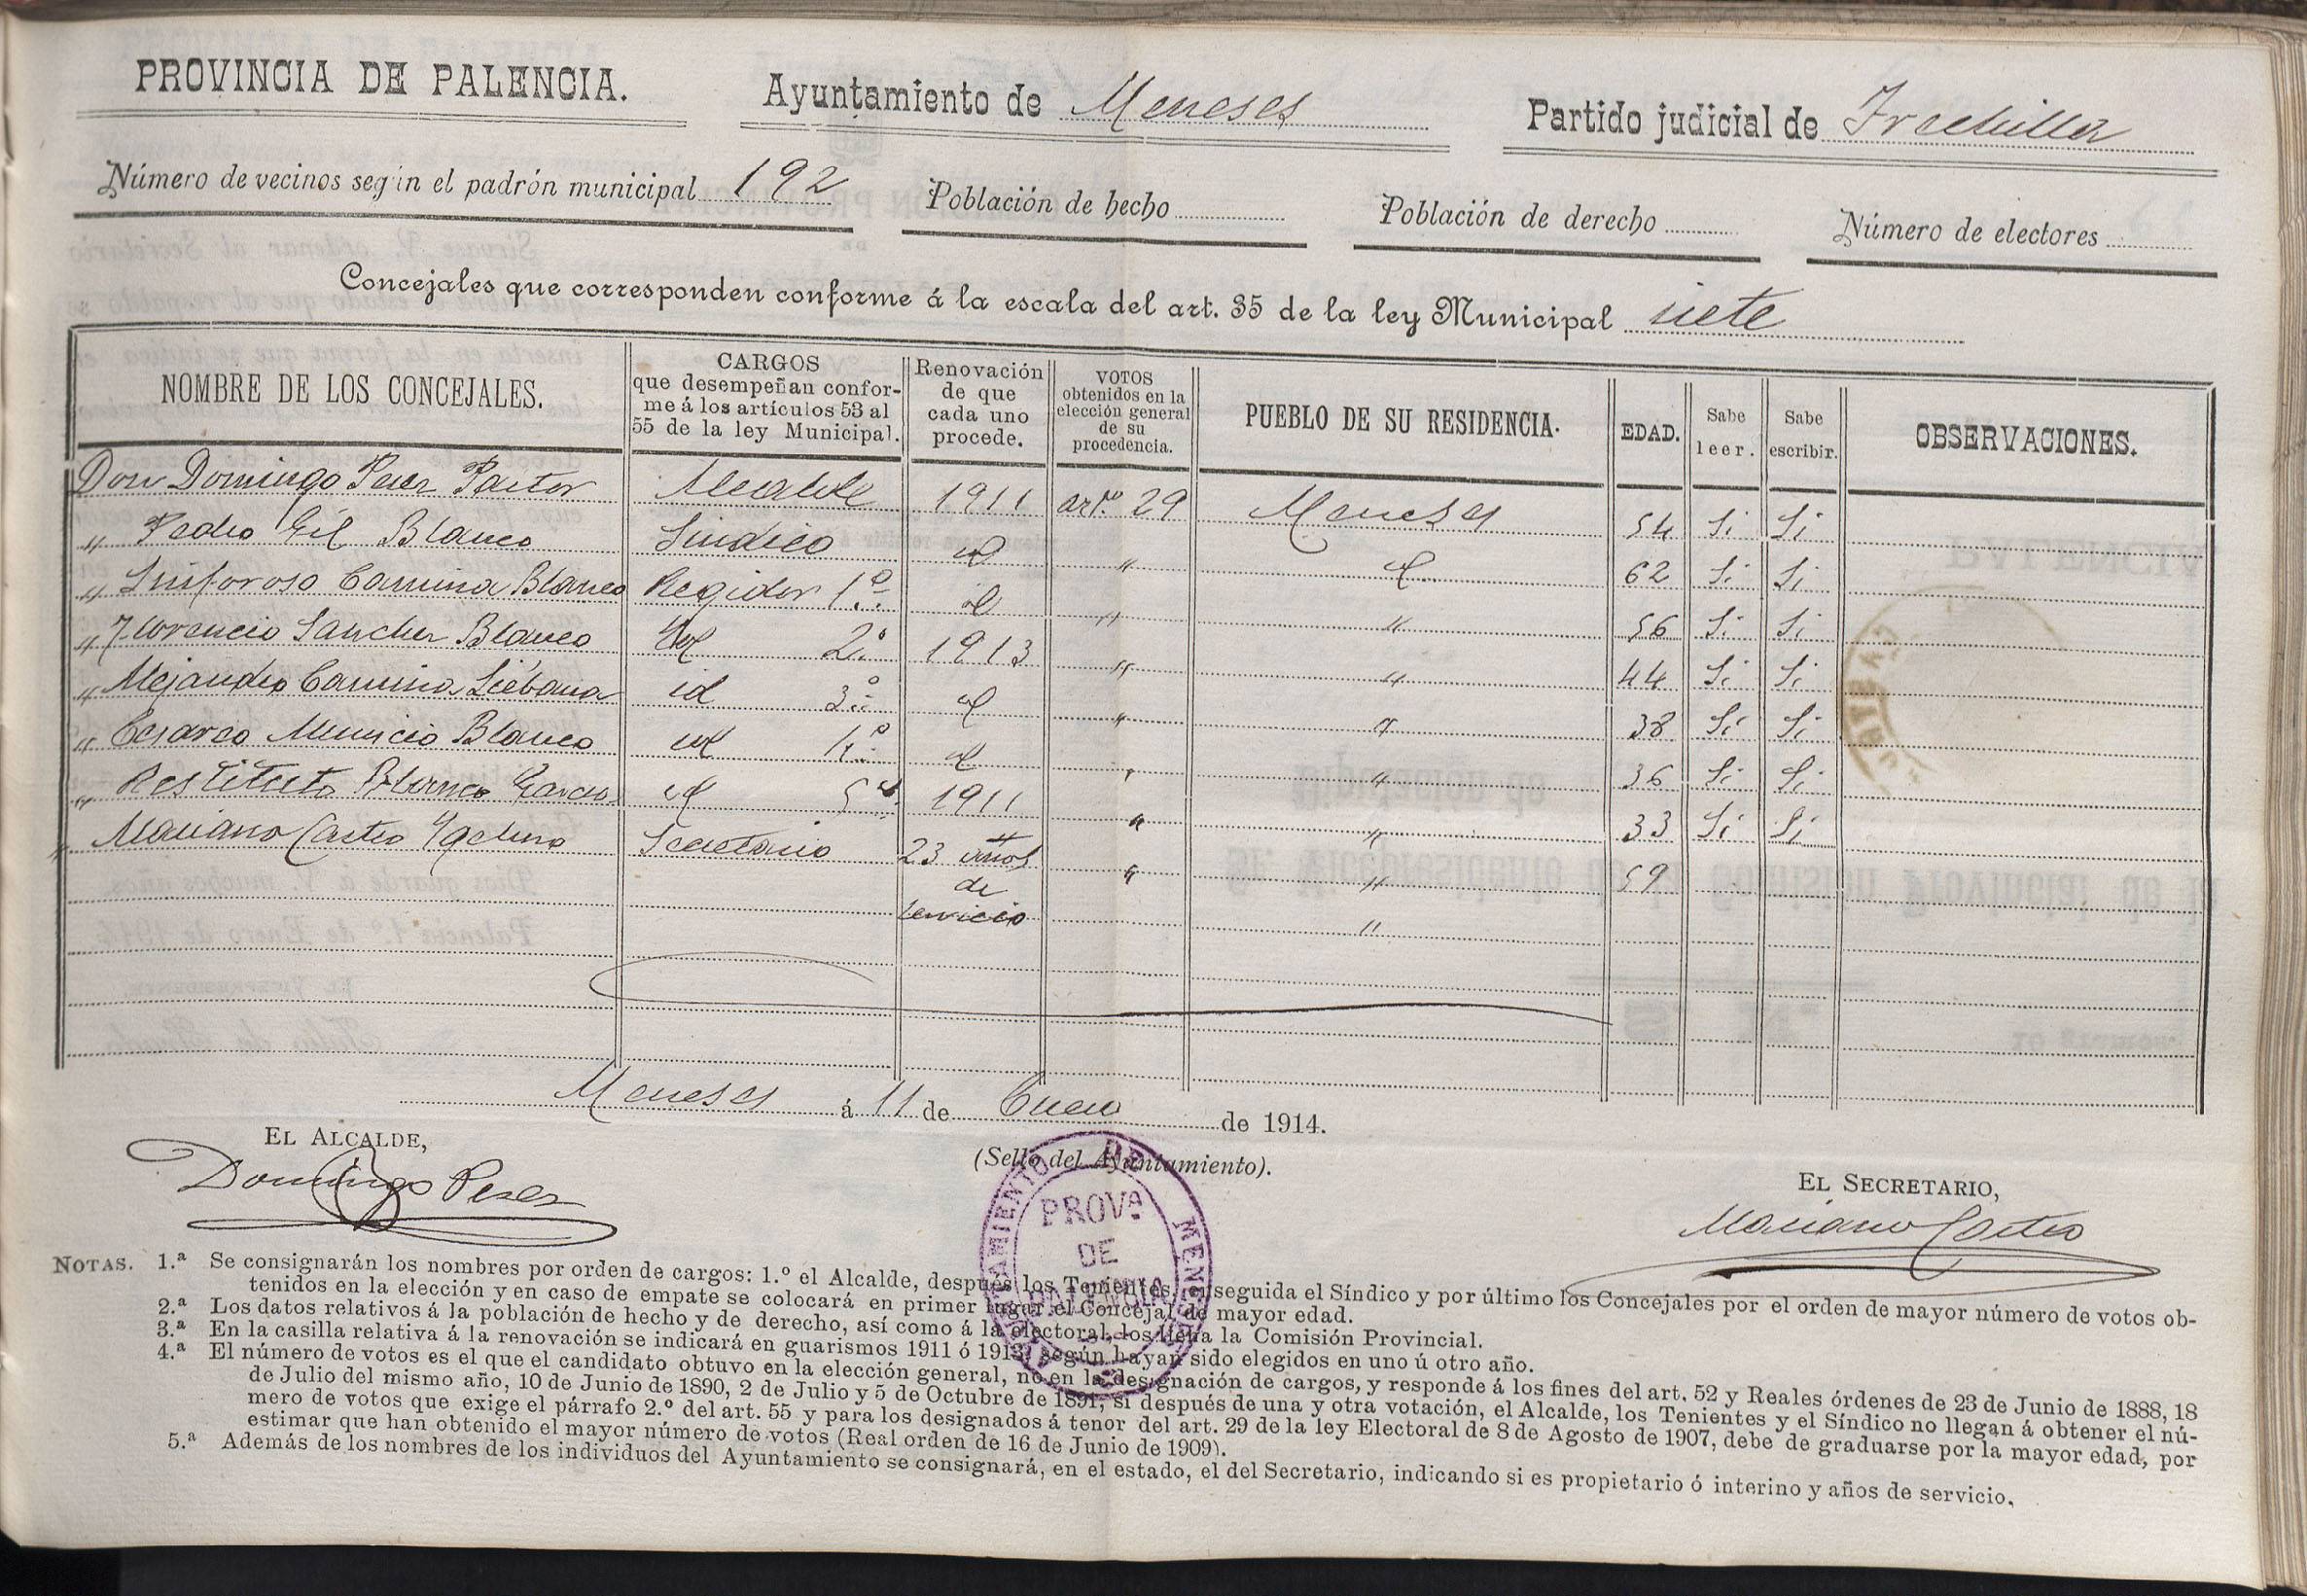 PROVINCIA DE PALENCIA. Ayuntamiento de Meneses Partido judicial de Frechilla
Número de vecinos según el padrón municipal 192 Población de hecho Población de derecho Número de electores
Concejales que corresponden conforme á la escala del art. 35 de la ley Municipal siete
NOMBRE DE LOS CONCEJALES. CARGOS que desempeñan conforme á los artículos 53 al 55 de la ley Municipal. Renovación de que cada uno procede. VOTOS obtenidos en la elección general de su procedencia. PUEBLO DE SU RESIDENCIA. EDAD. Sabe leer. Sabe escribir. OBSERVACIONES.
Don Domingo Perez Pastor Alcalde 1911 artº 29 Meneses 54 Si Si
" Pedro Gil Blanco Sindico id " id 62 Si Si
" Sinforoso Camina Blanco Regidor 1.º id " " 56 Si Si
" Florencio Sanchez Blanco id 2.º 1913 " " 44 Si Si
" Alejandro Camina Liébana id 3.º id " " 38 Si Si
" Cesareo Municio Blanco id 4.º id " " 36 Si Si
" Restituto Blanco Garcia id 5º 1911 " " 33 Si Si
Mariano Castro Secretario 23 años " " 59
de
servicio "
Meneses á 11 de Enero de 1914.
EL ALCALDE,
(Sello del Ayuntamiento).
EL SECRETARIO,
Domingo Perez
Mariano Castro
AYUNTAMIENTO DE MENESES
PROVA
DE
PALENCIA
NOTAS. 1.ª Se consignarán los nombres por orden de cargos: 1.º el Alcalde, después los Tenientes, enseguida el Síndico y por último los Concejales por el orden de mayor número de votos ob-
tenidos en la elección y en caso de empate se colocará en primer lugar el Concejal de mayor edad.
2.ª Los datos relativos á la población de hecho y de derecho, así como á la electoral, los llena la Comisión Provincial.
3.ª En la casilla relativa á la renovación se indicará en guarismos 1911 ó 1913, según hayan sido elegidos en uno ú otro año.
4.ª El número de votos es el que el candidato obtuvo en la elección general, no en la designación de cargos, y responde á los fines del art. 52 y Reales órdenes de 23 de Junio de 1888, 18
de Julio del mismo año, 10 de Junio de 1890, 2 de Julio y 5 de Octubre de 1891, si después de una y otra votación, el Alcalde, los Tenientes y el Síndico no llegan á obtener el nú-
mero de votos que exige el párrafo 2.º del art. 55 y para los designados á tenor del art. 29 de la ley Electoral de 8 de Agosto de 1907, debe de graduarse por la mayor edad, por
estimar que han obtenido el mayor número de votos (Real orden de 16 de Junio de 1909).
5.ª Además de los nombres de los individuos del Ayuntamiento se consignará, en el estado, el del Secretario, indicando si es propietario ó interino y años de servicio.